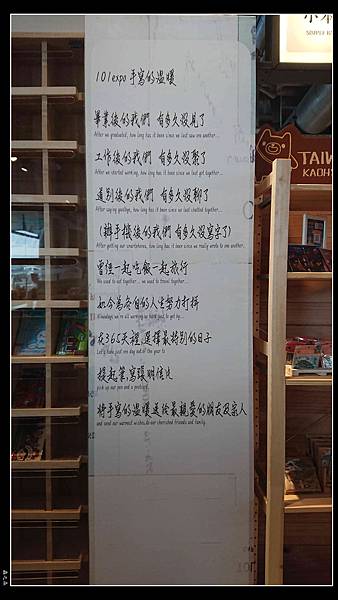 101expo 手寫的溫暖
畢業後的我們 有多久沒見了
After we graduated, how long has it been since we last saw one another...
工作後的我們 有多久沒聚了
After we started working, how long has it been since we last got together...
道別後的我們 有多久沒聊了
After saying goodbye, how long has it been since we last chatted together...
(辦手機後的我們 有多久沒寫字了)
After getting our smartphones, how long has it been since we really wrote to one another...
曾經一起吃飯一起旅行
We used to eat together... we used to travel together...
如今為各自的人生努力打拼
Nowadays we're all working so hard just to get by...
在365天裡,選擇最特別的日子
Let's take just one day out of the year to
提起筆,寫張明信片
pick up our pen and a postcard,
將手寫的溫暖送給最親愛的朋友及家人
and send our warmest wishes to our cherished friends and family.
TAIW
KAOHS